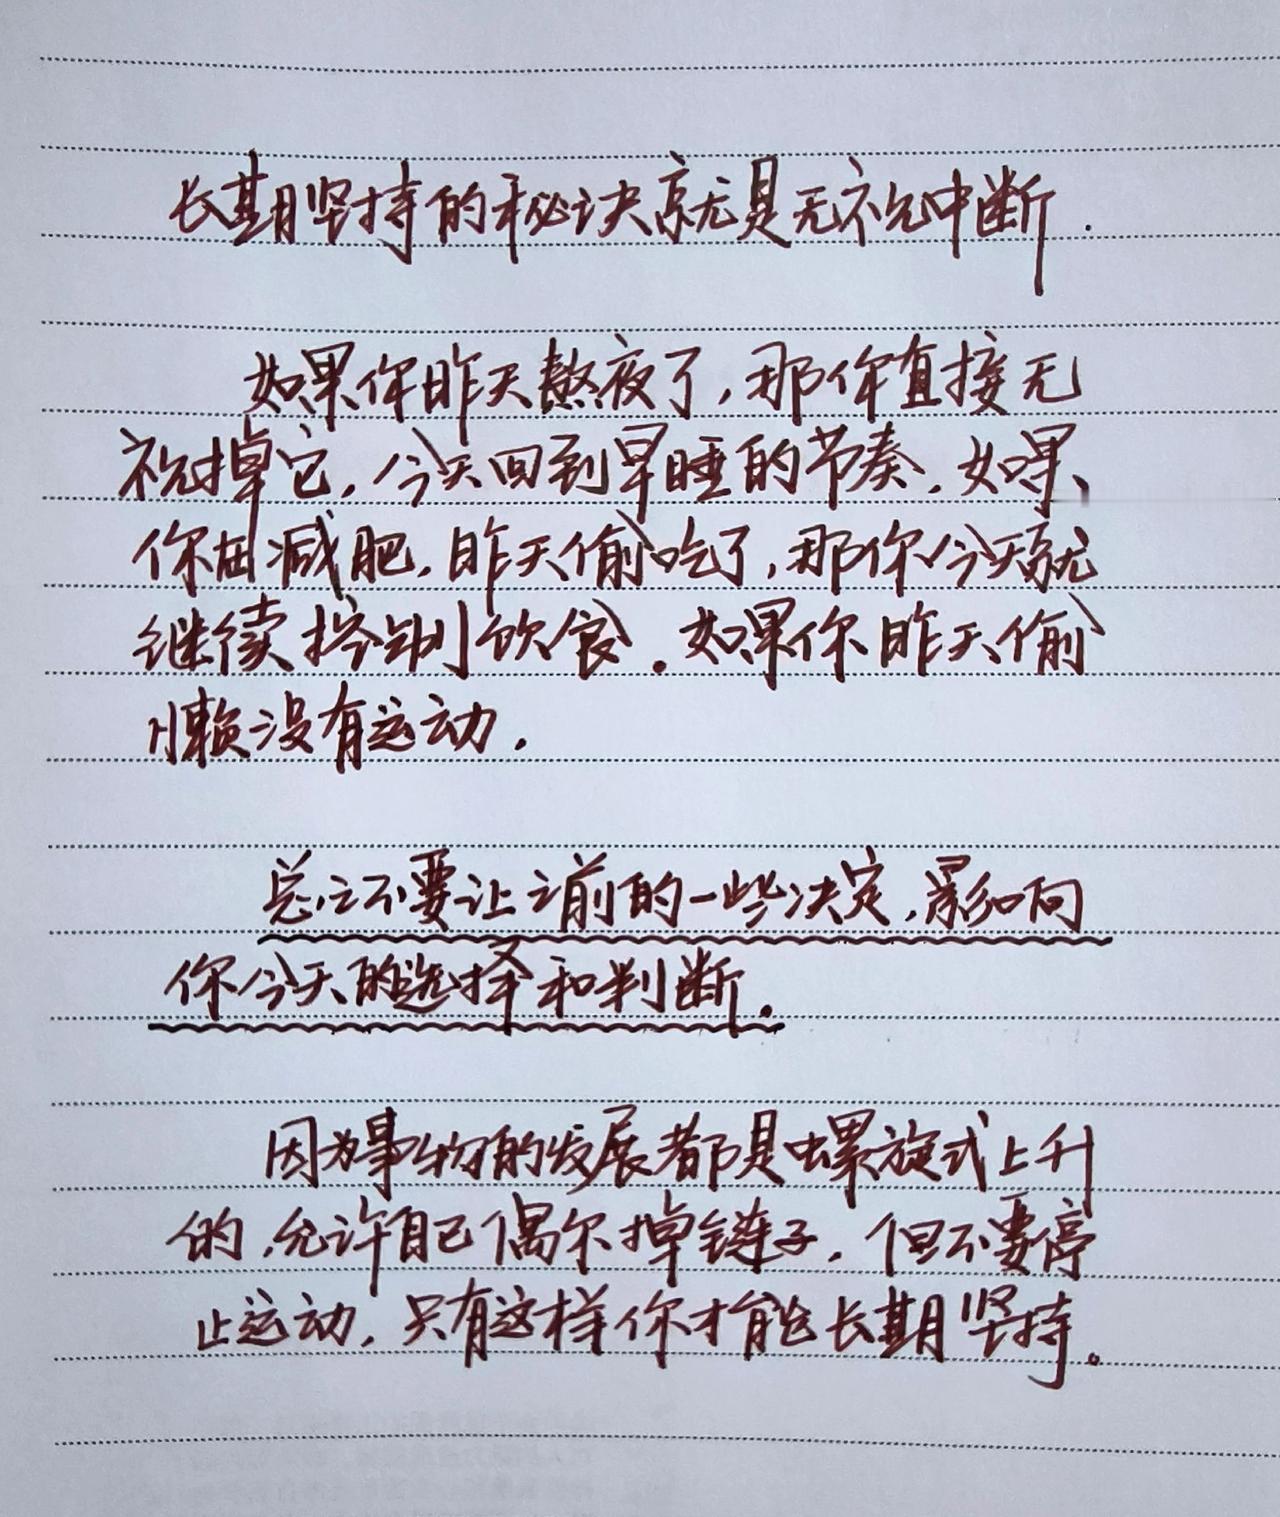 长期坚持的秘诀就是无视中断.
如果你昨天熬夜了,那你直接无
视掉它,今天回到早睡的节奏.如果
你在减肥.昨天偷吃了,那你今天就
继续控制饮食.如果你昨天偷
懒没有运动.
总之不要让之前的一些决定,影响
你今天的选择和判断.
因为事物的发展都是螺旋式上升
的,允许自己偶尔掉链子.但不要停
止运动,只有这样你才能长期坚持。